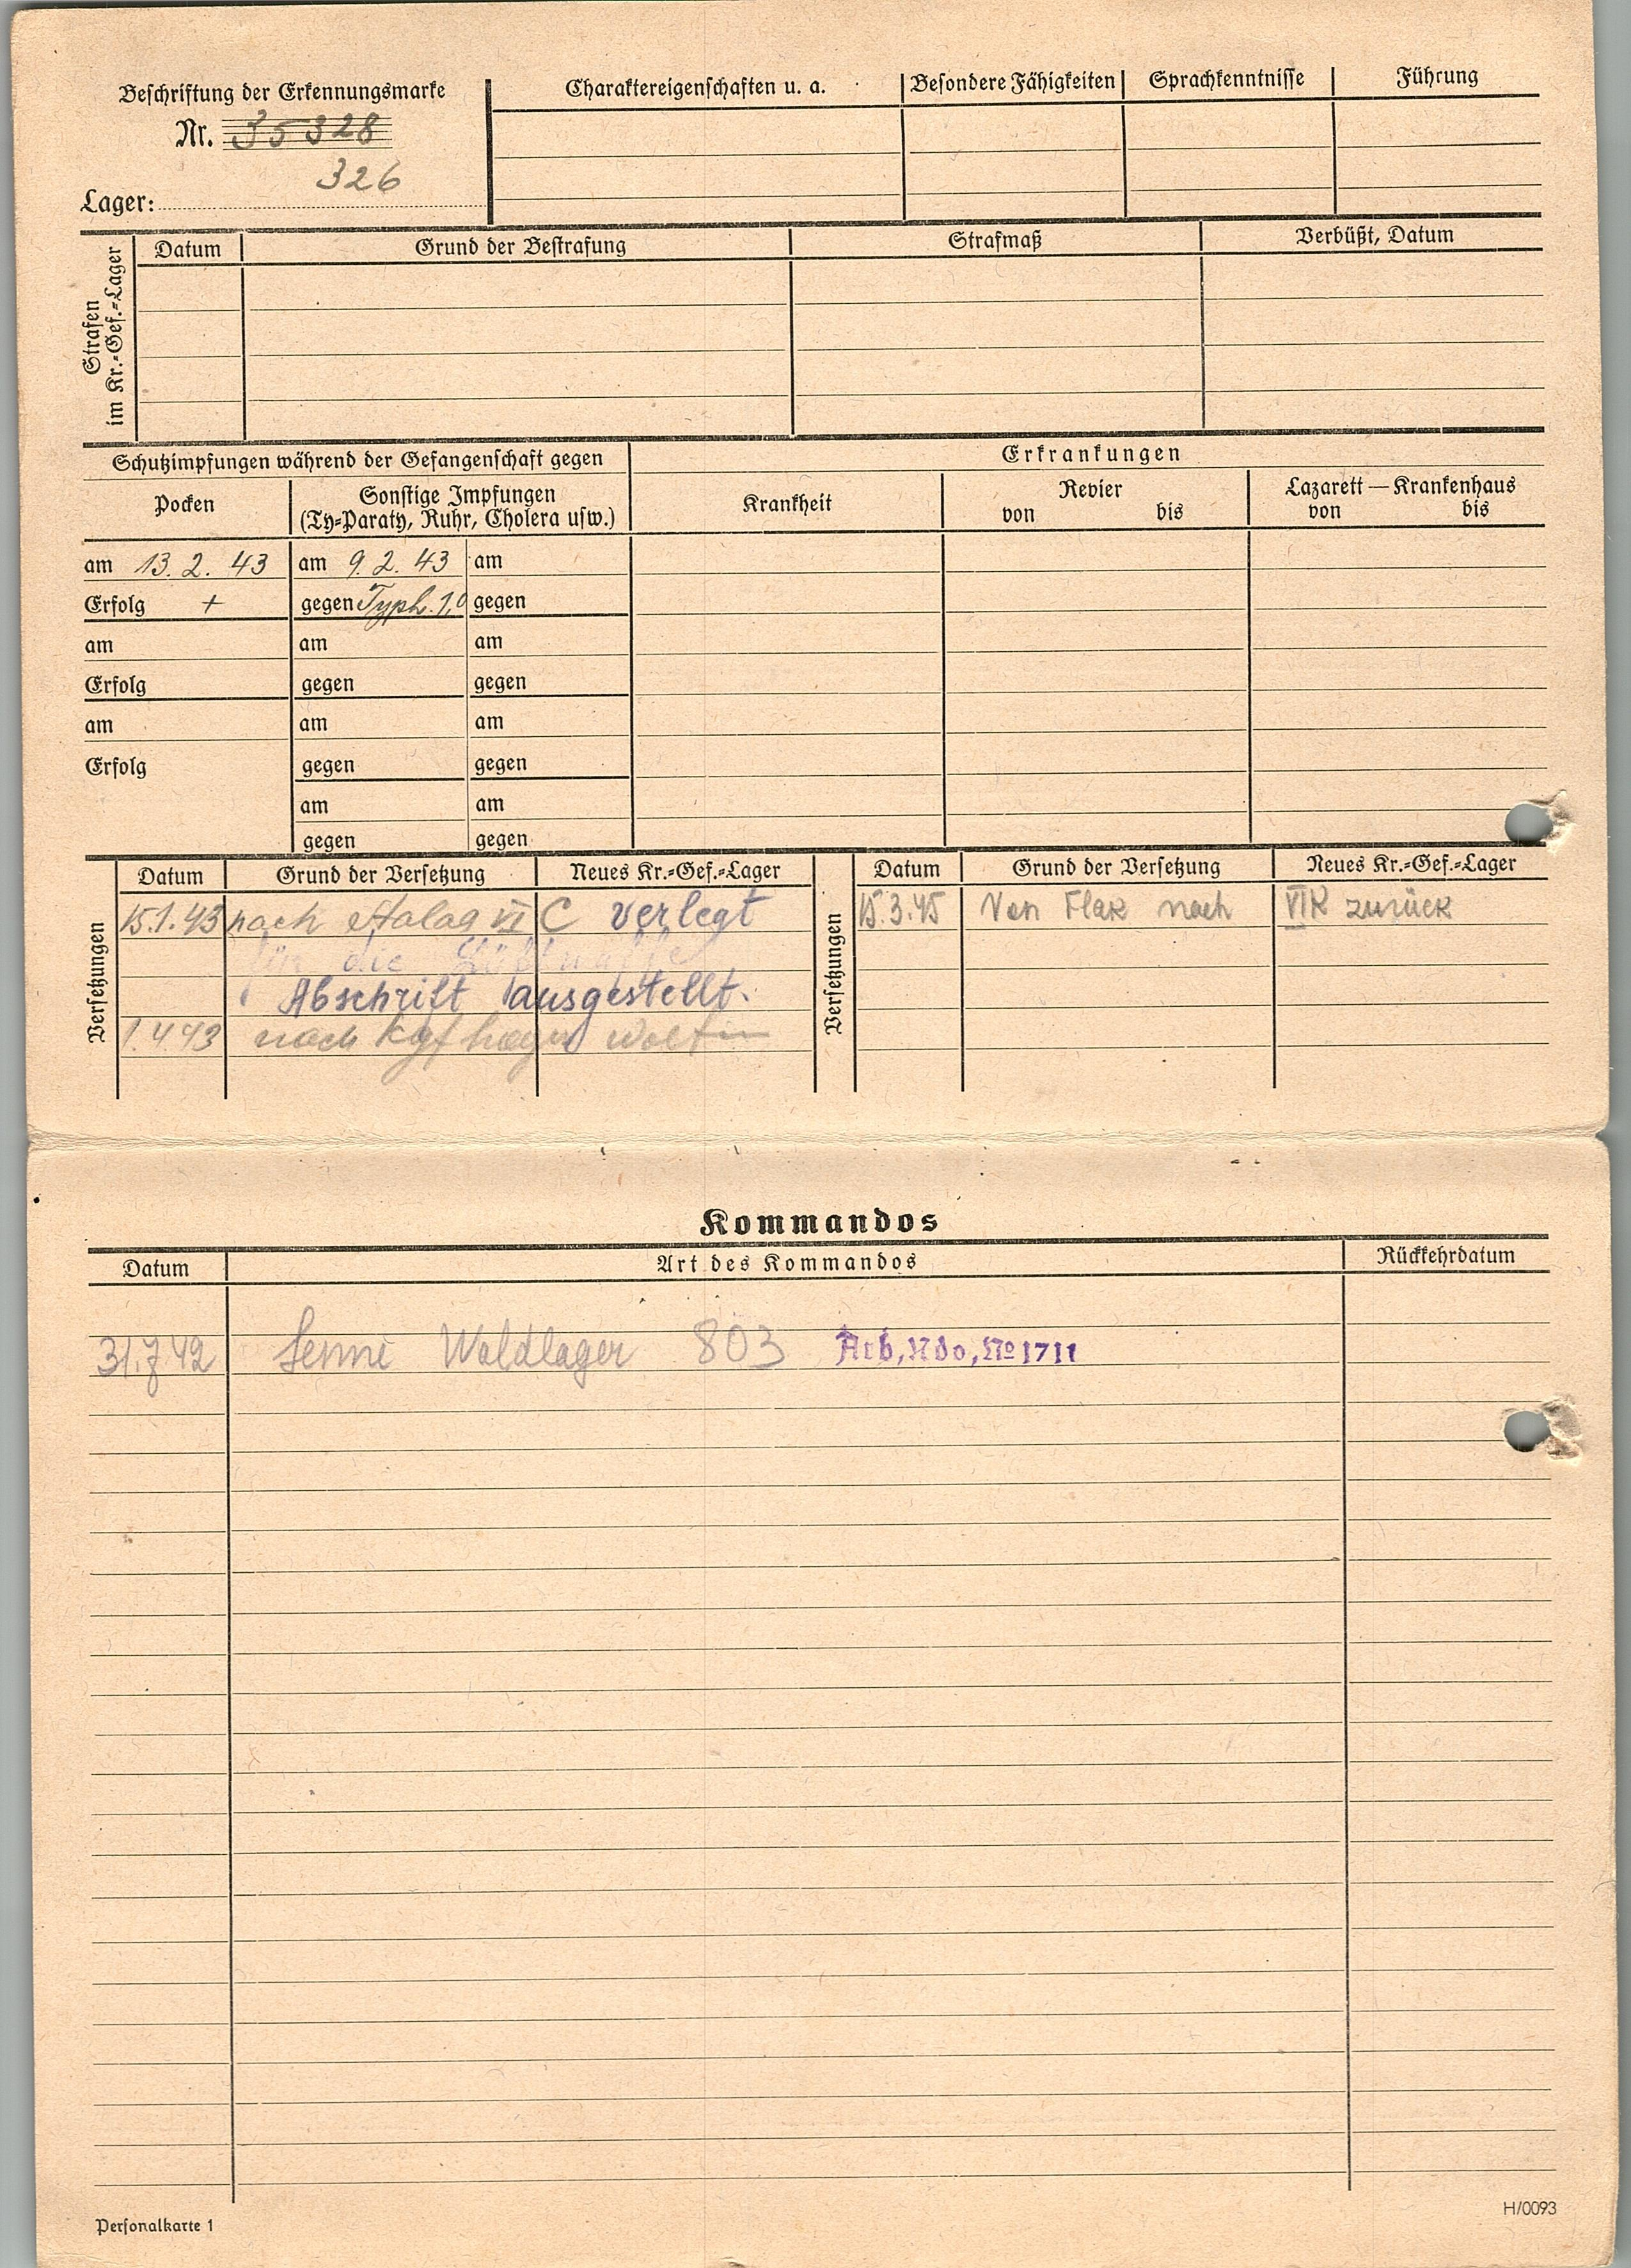 Beschriftung der Erkennungsmarke
Nr. 35328
326
Lager:
Charaktereigenschaften u. a.
Besondere Fähigkeiten
Sprachkenntnisse
Führung
Strafen
im Kr.-Gef.-Lager
Datum
Grund der Bestrafung
Strafmaß
Verbüßt, Datum
Schutzimpfungen während der Gefangenschaft gegen
Erkrankungen
Pocken
Sonstige Impfungen
(Ty-Paraty, Ruhr, Cholera usw.)
Krankheit
Revier
von bis
Lazarett — Krankenhaus
von bis
am 13. 2. 43 am 9. 2. 43 am
Erfolg + gegen Typh. 1,0 gegen
am am am
Erfolg gegen gegen
am am am
Erfolg gegen gegen
am am
gegen gegen
Versetzungen
Datum Grund der Versetzung Neues Kr.-Gef.-Lager
15.1.43 nach Stalag VI C verlegt
für die
Abschrift ausgestellt.
1.4.43 nach Kgf
Versetzungen
Datum Grund der Versetzung Neues Kr.-Gef.-Lager
15.3.45 Von Flak nach VIK zurück
Kommandos
Datum Art des Kommandos Rückkehrdatum
31.7.42 Senne Waldlager 803 Arb,Kdo,No 1711
Personalkarte 1
H/0093